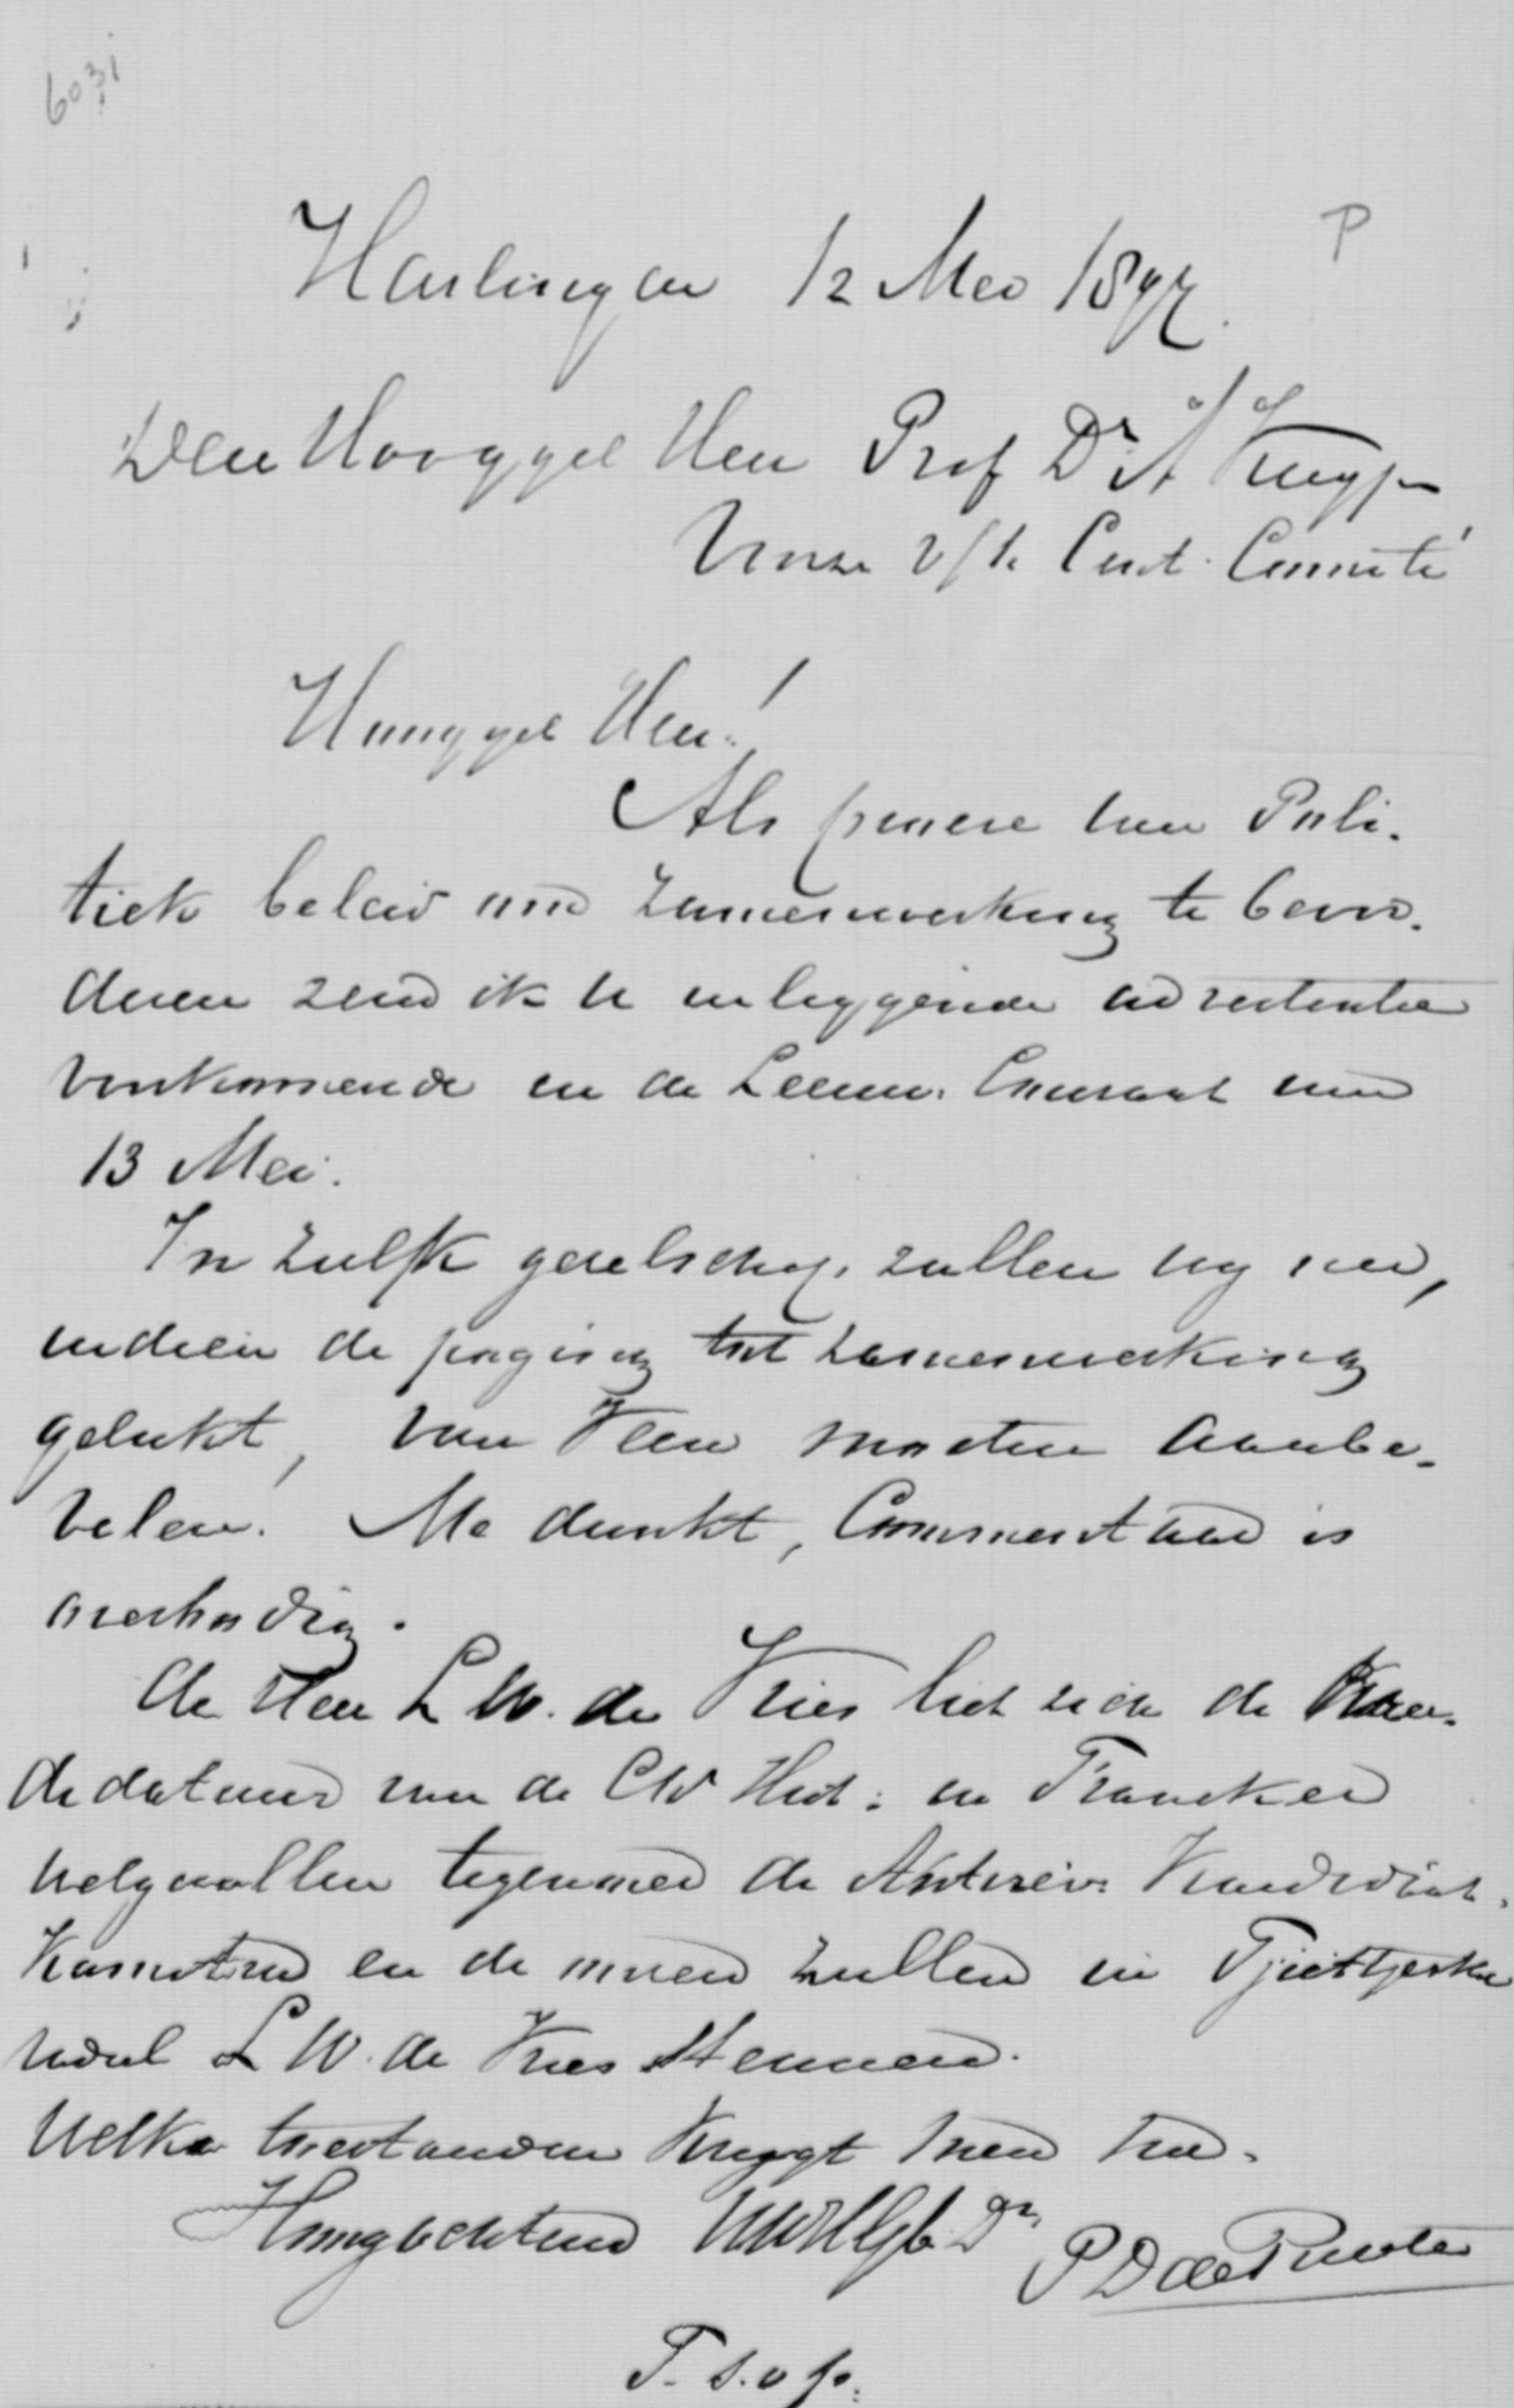 6031
P
Harlingen 12 Mei 1897.
Den Hooggel Heer Prof Dr A Kuyper
Voorz v/h Cent. Comité
Hooggel Heer!
Als proeve van Poli-
tiek beleid om zamenwerking te bevor-
deren zend ik U inleggende advertentie
voorkomende in de Leeuw. Courant van
13 Mei.
In zulk gezelschap zullen wij nu,
indien de poging tot zamenwerking
gelukt, van Veen moeten aanbe-
velen. Me dunkt, Commentaar is
overbodig.
De Heer L W. de Vries liet zich de Kan-
didatuur van de Chr Hist: in Franeker
welgevallen tegenover de Antirev: Kandidaat.
en de onzen zullen in Tjietjerks
wel L W. de Vries Stemmen.
Welke toestanden krijgt men toe.
Hoogachtend UwHlgb. Dr,
P D de Ruiter
T. s. o p.